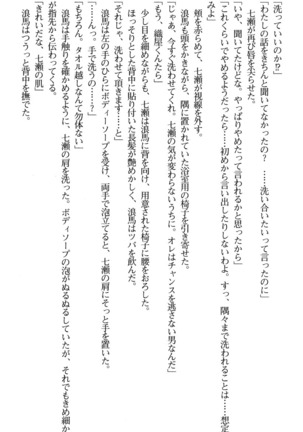 「洗っていいのか？」
　七瀬が再び唇を尖らせた。
「わたしの話をきちんと聞いてなかったの？　……洗い合いたいって言ったのに」
「いや、聞いてたけどな。やっぱりやめたって言われるかと思ったから」
「こらくらいでやめるようだったら……初めから言い出したりしないわよ。すっ、隅々まで洗われることは……想定
みよ」
　頬を赤らめて、七瀬が視線を外す。
　浪馬も頭をかきながら、隅に置かれていた浴室用の椅子を引き寄せた。
「じゃあ、今すぐ洗わせてくれ。七瀬の気が変わらないうちに。オレはチャンスを逃さない男なんだ」
「もう、織屋くんたら」
　少し目を細めながらも、七瀬は浪馬に背を向け、用意された椅子に腰をおろした。
　ほっそりとした背中に貼り付いた長髪が艶めかしく、浪馬はツバを飲んだ。
「それじゃ、洗わせて頂きます……と」
　浪馬は左の手のひらにボディーソープを受け、両手で泡立てると、七瀬の肩にそっと手を置いた。
「……んっ。手で洗うの……？」
「もちろん。タオル越しなんて勿体ない」
　浪馬は手触りを確かめるように、七瀬の肩を洗った。ボディソープの泡がぬるぬるしていたが、それでもきめ細か
が指先から伝わってくる。
「きれいだな、七瀬の肌」
　浪馬はうっとりと背中を撫でた。